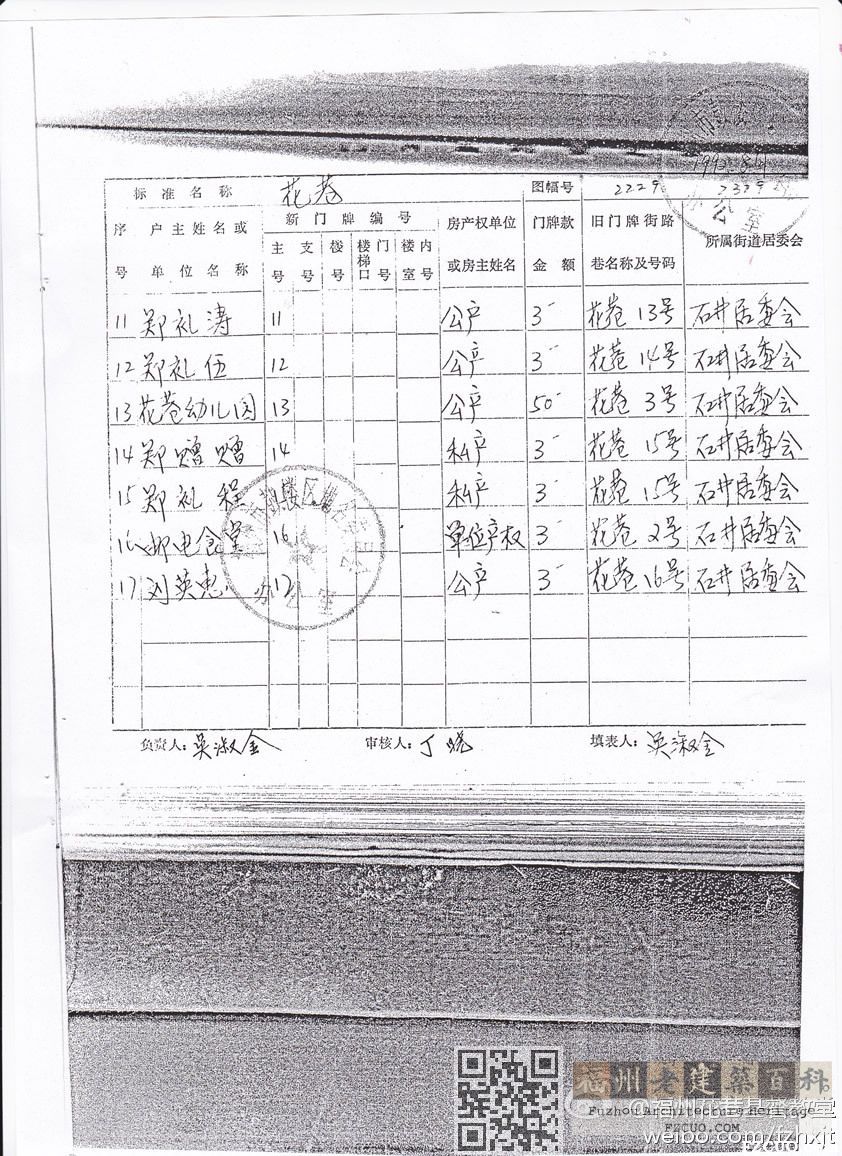 标准名称 花巷 图幅号 2229 2329
序号 户主姓名或单位名称 新门牌编号 房产权单位或房主姓名 门牌款金额 旧门牌街路巷名称及号码 所属街道居委会
主号 支号 楼梯口 门号 楼室 内号
11 郑礼涛 11 公产 3 花巷13号 石井居委会
12 郑礼伍 12 公产 3 花巷14号 石井居委会
13 花巷幼儿园 13 公产 50 花巷3号 石井居委会
14 郑 14 私产 3 花巷15号 石井居委会
15 郑礼程 私产 3 花巷15号 石井居委会
16 邮电食堂 16 单位产权 3 花巷2号 石井居委会
17 刘英惠 17 公产 3 花巷16号 石井居委会
负责人:吴淑金 审核人:丁晓 填表人:吴淑金
福州老建筑百科
@福州花巷基督教堂
Fuzhou Architecture Heritage
FZCUO.COM
weibo.com/fzhxjt